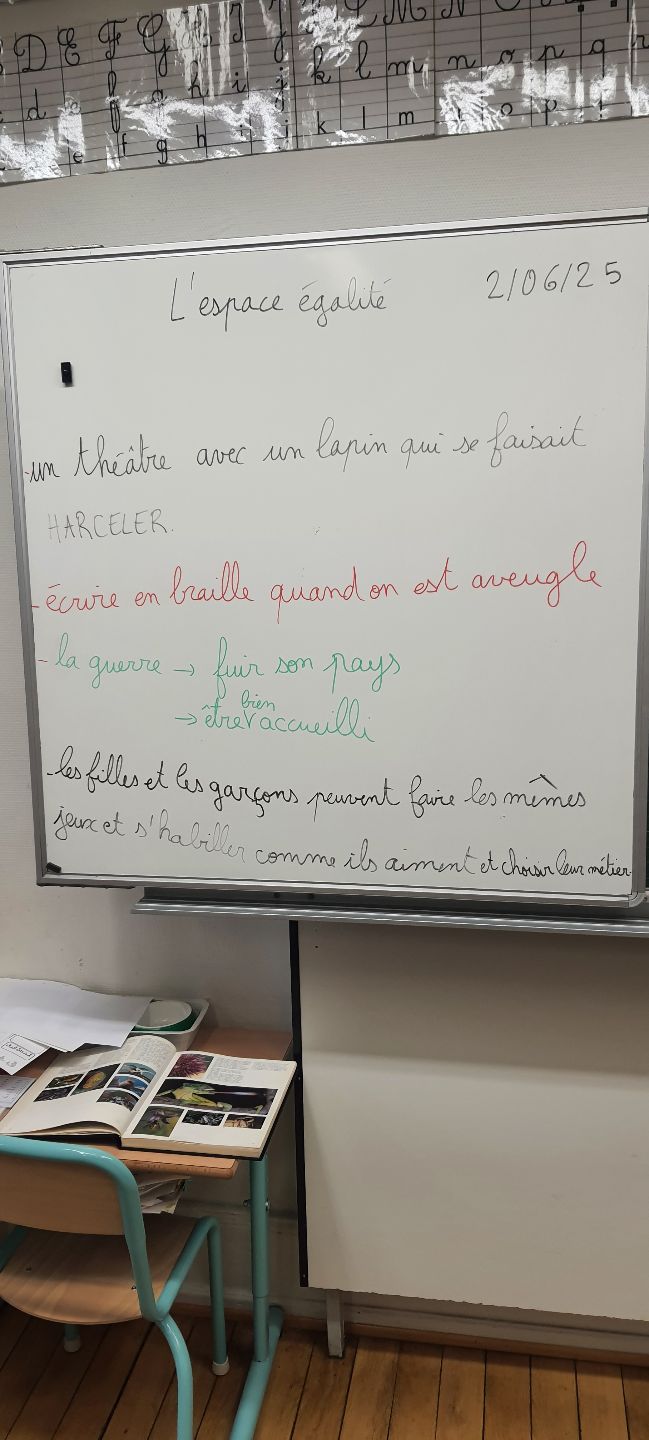 D E F G H I J K L M N O P Q
d e f g h i j k l m n o p q r
e f g h i j k l m n o p
L'espace égalité 2/06/25
-un théâtre avec un lapin qui se faisait
HARCELER.
-écrire en braille quand on est aveugle
-la guerre → fuir son pays
bien
→ être √ accueilli
-les filles et les garçons peuvent faire les mêmes
jeux et s'habiller comme ils aiment et choisir leur métier.